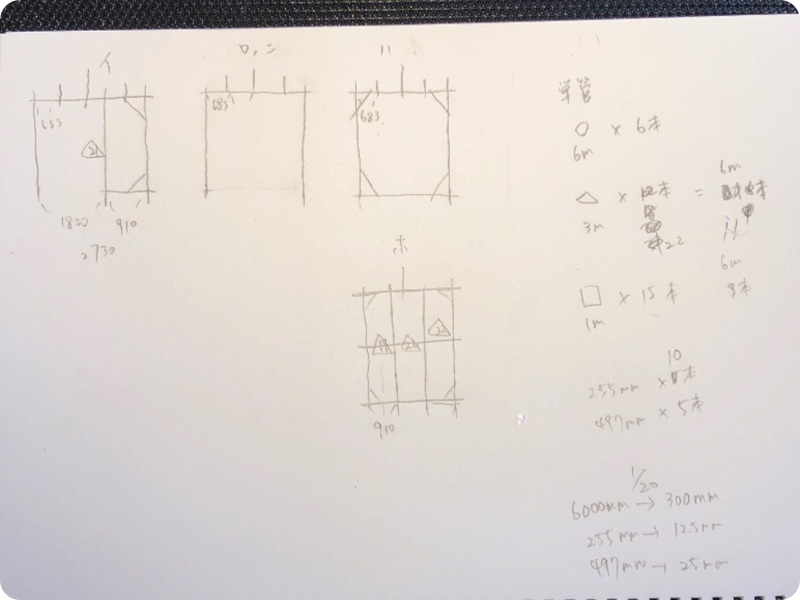 イ
ロ, ニ
ハ
683
683
683
21
1820
910
2730
ホ
910
単管
○ × 6本
6m
△ × 本 =
6m
3m
22
□ × 15本
6m
1m
10
255mm × 本
497mm × 5本
1/20
6000mm → 300mm
255mm → 12.5mm
497mm → 25mm